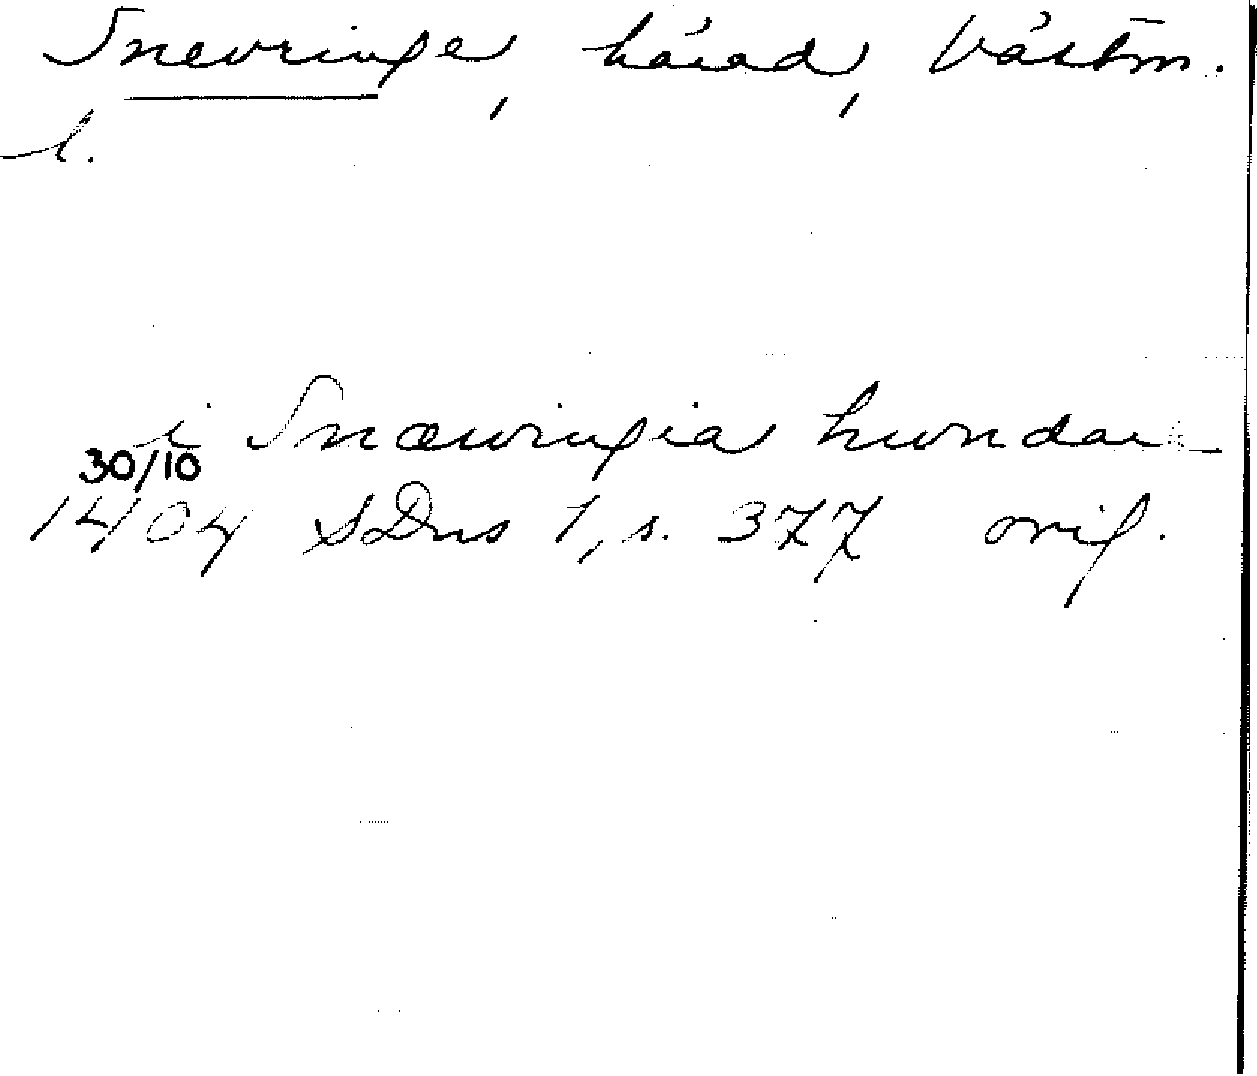 Snevringe, härad, Västm.
l.
i Snæwringia hundar
30/10
1404 SDns 1, s. 377 orig.